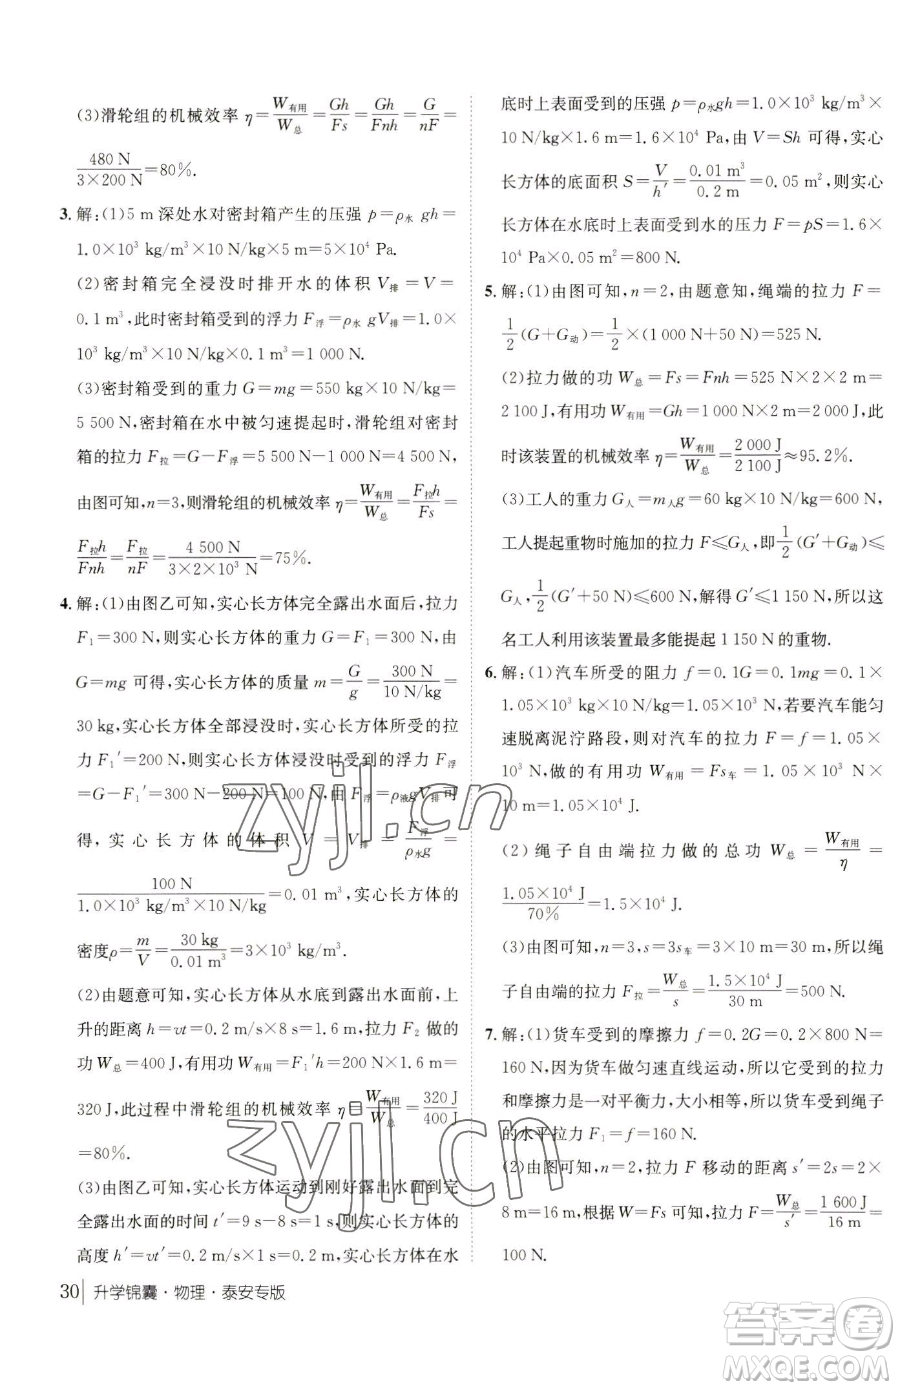 (3)滑轮组的机械效率 η=W有用/W总=Gh/Fs=Gh/Fnh=G/nF=
480 N/3×200 N=80%.
3. 解:(1)5 m深处水对密封箱产生的压强 p=ρ水 gh=
1.0×10³ kg/m³×10 N/kg×5 m=5×10⁴ Pa.
(2)密封箱完全浸没时排开水的体积 V排=V=
0.1 m³,此时密封箱受到的浮力 F浮=ρ水 gV排=1.0×
10³ kg/m³×10 N/kg×0.1 m³=1 000 N.
(3)密封箱受到的重力 G=mg=550 kg×10 N/kg=
5 500 N,密封箱在水中被匀速提起时,滑轮组对密封
箱的拉力 F拉=G-F浮=5 500 N-1 000 N=4 500 N,
由图可知,n=3,则滑轮组的机械效率 η=W有用/W总=F拉h/Fs=
F拉h/Fnh=F拉/nF=4 500 N/3×2×10³ N=75%.
4. 解:(1)由图乙可知,实心长方体完全露出水面后,拉力
F₁=300 N,则实心长方体的重力 G=F₁=300 N,由
G=mg 可得,实心长方体的质量 m=G/g=300 N/10 N/kg=
30 kg,实心长方体全部浸没时,实心长方体所受的拉
力 F₁′=200 N,则实心长方体浸没时受到的浮力 F浮
=G-F₁′=300 N-200 N=100 N,由 F浮=ρ液gV排 可
得,实心长方体的体积 V=V排=F浮/ρ水g=
100 N/1.0×10³ kg/m³×10 N/kg=0.01 m³,实心长方体的
密度ρ=m/V=30 kg/0.01 m³=3×10³ kg/m³.
(2)由题意可知,实心长方体从水底到露出水面前,上
升的距离 h=vt=0.2 m/s×8 s=1.6 m,拉力 F₂ 做的
功 W总=400 J,有用功 W有用=F₁′h=200 N×1.6 m=
320 J,此过程中滑轮组的机械效率 η=W有用/W总=320 J/400 J
=80%.
(3)由图乙可知,实心长方体运动到刚好露出水面到完
全露出水面的时间 t′=9 s-8 s=1 s,则实心长方体的
高度 h′=vt′=0.2 m/s×1 s=0.2 m,实心长方体在水
底时上表面受到的压强 p=ρ水gh=1.0×10³ kg/m³×
10 N/kg×1.6 m=1.6×10⁴ Pa,由 V=Sh 可得,实心
长方体的底面积 S=V/h′=0.01 m³/0.2 m=0.05 m²,则实心
长方体在水底时上表面受到水的压力 F=pS=1.6×
10⁴ Pa×0.05 m²=800 N.
5. 解:(1)由图可知,n=2,由题意知,绳端的拉力 F=
1/2(G+G动)=1/2×(1 000 N+50 N)=525 N.
(2)拉力做的功 W总=Fs=Fnh=525 N×2×2 m=
2 100 J,有用功 W有用=Gh=1 000 N×2 m=2 000 J,此
时该装置的机械效率 η=W有用/W总=2 000 J/2 100 J≈95.2%.
(3)工人的重力 G人=m人g=60 kg×10 N/kg=600 N,
工人提起重物时施加的拉力 F≤G人,即1/2(G′+G动)≤
G人,1/2(G′+50 N)≤600 N,解得 G′≤1 150 N,所以这
名工人利用该装置最多能提起 1 150 N的重物.
6. 解:(1)汽车所受的阻力 f=0.1G=0.1mg=0.1×
1.05×10³ kg×10 N/kg=1.05×10³ N,若要汽车能匀
速脱离泥泞路段,则对汽车的拉力 F=f=1.05×
10³ N,做的有用功 W有用=Fs车=1.05×10³ N×
10 m=1.05×10⁴ J.
(2)绳子自由端拉力做的总功 W总=W有用/η=
1.05×10⁴ J/70%=1.5×10⁴ J.
(3)由图可知,n=3,s=3s车=3×10 m=30 m,所以绳
子自由端的拉力 F拉=W总/s=1.5×10⁴ J/30 m=500 N.
7. 解:(1)货车受到的摩擦力 f=0.2G=0.2×800 N=
160 N,因为货车做匀速直线运动,所以它受到的拉力
和摩擦力是一对平衡力,大小相等,所以货车受到绳子
的水平拉力 F₁=f=160 N.
(2)由图可知,n=2,拉力 F 移动的距离 s′=2s=2×
8 m=16 m,根据 W=Fs 可知,拉力 F=W总/s′=1 600 J/16 m=
100 N.
30 升学锦囊·物理·泰安专版
zyjl.cn
zyjl.cn
答案圈
MXQE.COM